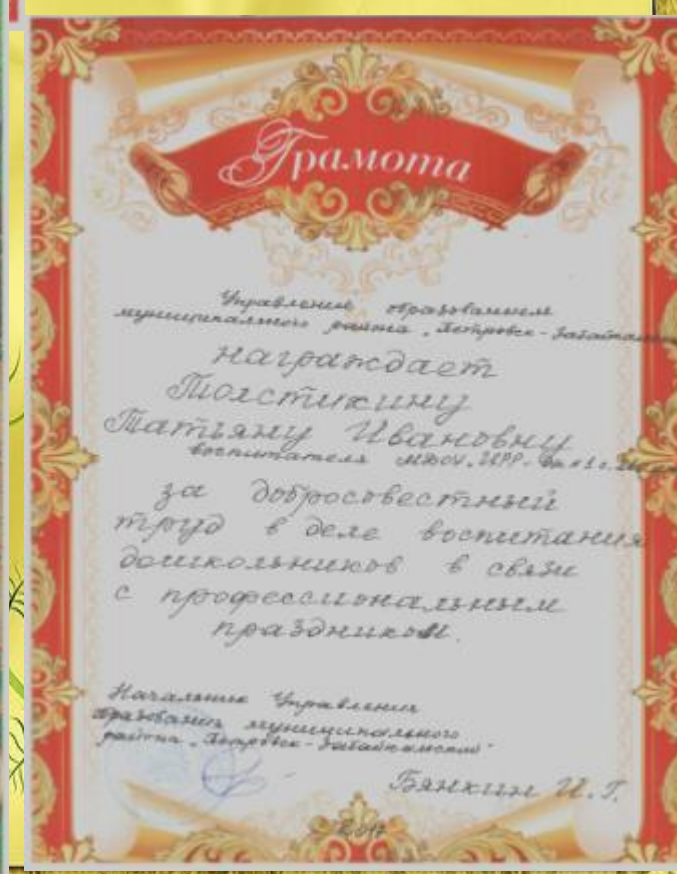 Грамота
Управление образованием
муниципального района „Петровск-Забайкальский
награждает
Толстихину
Татьяну Ивановну
воспитателя МДОУ „ЦРР-
за добросовестный
труд в деле воспитания
дошкольников в связи
с профессиональным
праздником.
Начальник Управления
образования муниципального
района „Петровск-Забайкальский"
Бянкин И. Г.